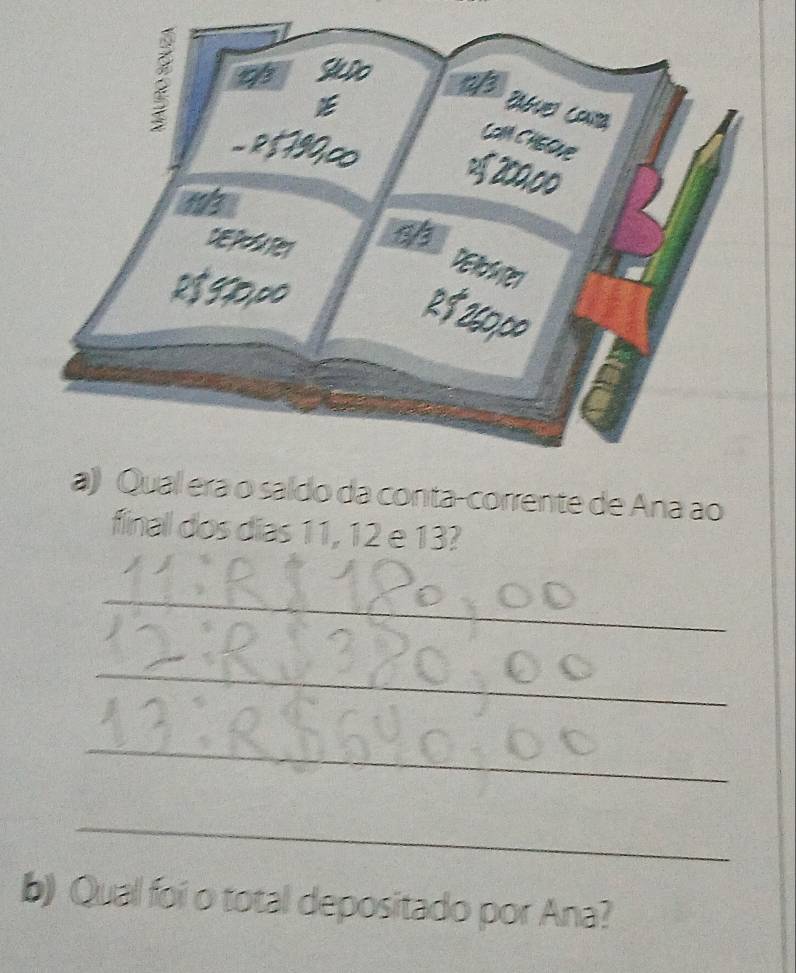 MAURO SOUZA
10/3 SALDO
DE
-R$790,00
11/3
DEPOSITEI
R$970,00
12/3
PAGUEI CONTA
COM CHEQUE
R$200,00
13/3
DEPOSITEI
R$260,00
a) Qual era o saldo da conta-corrente de Ana ao
final dos dias 11, 12 e 13?
11:R$180,00
12:R$380,00
13:R$640,00
b) Qual foi o total depositado por Ana?